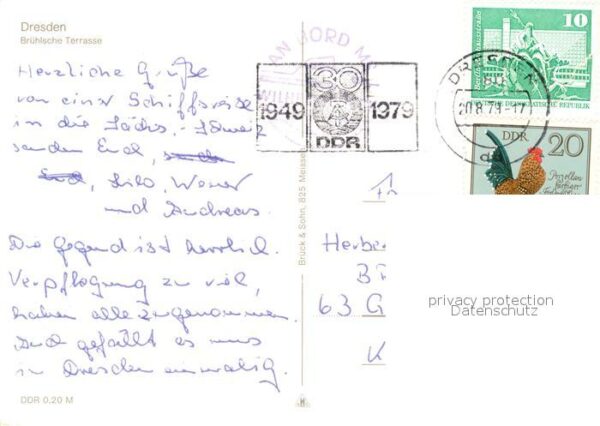 Dresden
Brühlsche Terrasse
Herzliche Grüße
von einer Schiffsreise
in die Sächs. Schweiz
senden Euch,
Lilo, Werner
und Andreas.
Die Gegend ist herrlich.
Verpflegung zu viel,
haben alle zugenommen.
Auch gefällt es uns
in Dresden einmalig.
DDR 0,20 M
Bruck & Sohn, 825 Meissen
AN BORD
1949
30
DDR
1979
DRESDEN
20.8.79-17
10
DEUTSCHE DEMOKRATISCHE REPUBLIK
DDR 20
Herber
63 G
K
privacy protection
Datenschutz